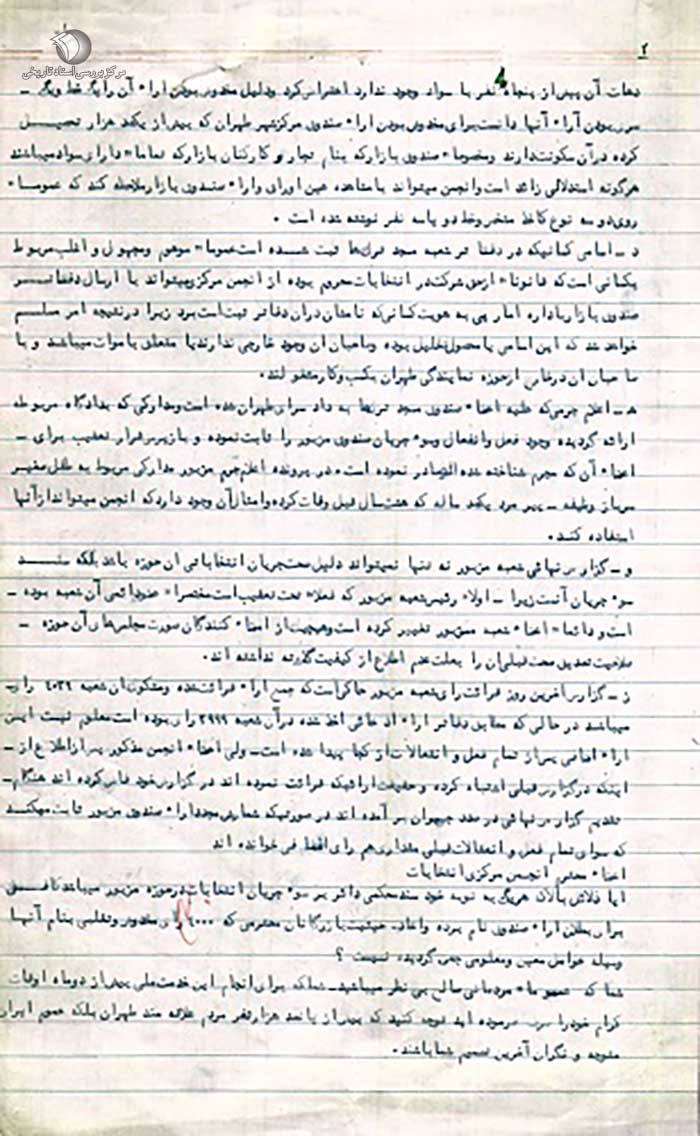 مرکز بررسی اسناد تاریخی
۲
دهات آن بیش از پنجاه نفر با سواد وجود ندارد اعتراض کرد ودلیل مخدوش بودن آراء آن رایک خط ویک -
سری بودن آراء آنها دانست برای مخدوش بودن آراء صندوق مرکز شهر طهران که بیش از یکصد هزار تحصیل
کرده در آن سکونت دارند وخصوصاً صندوق بازار که بنام تجار و کارکنان بازار که تماماً دارای سواد میباشند
هر گونه استدلالی زائد است وانجمن میتواند با مشاهده عین اوراق واراء صندوق بازار ملاحظه کند که عموماً
روی دو سه نوع کاغذ مشخص وخط دو یا سه نفر نوشته شده است .
د - اسامی کسانیکه در دفاتر شعبه مسجد ترکها ثبت شده است عموماً موهوم ومجهول و اغلب مربوط
بکسانی است که قانوناً از حق شرکت در انتخابات محروم بوده از انجمن مرکزی میتواند با ارسال دفاتر
صندوق بازار باداره آمار پی به هویت کسانی که نامشان در آن دفاتر ثبت است برد زیرا درنتیجه امر مسلم
خواهد شد که این اسامی یا محصول تخیل بوده وصاحبان آن وجود خارجی ندارند یا متعلق باموات میباشد و یا
صاحبان آن در خارج از حوزه نمایندگی طهران بکسب وکار مشغولند.
ه - اعلام جرمی که علیه اعضاء صندوق مسجد ترکها به داد سرای طهران شده است ومدارکی که بدادگاه مربوطه
ارائه گردیده وجود فعل وانفعال وسوء جریان صندوق مزبور را ثابت نموده و بازپرس قرار تعقیب برای -
اعضاء آن که مجرم شناخته شده اند صادر نموده است . در پرونده اعلام جرم مزبور مدارکی مربوط به طفل صغیر
سرباز وظیفه - پیر مرد یکصد ساله که هشت سال قبل وفات کرده وامثال آن وجود دارد که انجمن میتواند از آنها
استفاده کند.
و - گزارش نهائی شعبه مزبور نه تنها نمیتواند دلیل صحت جریان انتخاباتی آن حوزه باشد بلکه سند
سوء جریان آنست زیرا - اولاً رئیس شعبه مزبور که فعلاً تحت تعقیب است منحصراً عضو دائمی آن شعبه بوده -
است و دائماً اعضاء شعبه مزبور تغییر کرده است وهیچیک از امضاء کنندگان صورت مجلس های آن حوزه -
صلاحیت تصدیق صحت قبلی آن را بعلت عدم اطلاع از کیفیت گذشته نداشته اند.
ز - گزارش آخرین روز قرائت رای شعبه مزبور حاکی است که جمع آراء قرائت شده ومشکوک آن شعبه ۴۰۳۶ رای
میباشد در حالی که مطابق دفاتر آراء اخذ شده در آن شعبه ۳۹۹۹ رای بوده است معلوم نیست این
آراء اضافی پس از تمام فعل و انفعالات از کجا پیدا شده است - ولی اعضاء انجمن مذکور پس از اطلاع از -
اینکه در گزارش قبلی اشتباه کرده و حقیقت آرائیکه قرائت نموده اند در گزارش خود فاش کرده اند هنگام -
تقدیم گزارش نهائی در صدد جبران بر آمده اند در صورتیکه شمارش مجدد آراء صندوق مزبور ثابت میکند
که سوای تمام فعل و انفعالات قبلی مقداری هم رای اضافی خوانده اند
اعضاء محترم انجمن مرکزی انتخابات
ایا دلائل بالا که هر یک به نوبه خود سند محکمی دائر بر سوء جریان انتخابات در حوزه مزبور میباشد کافی
برای بطلان آراء صندوق نام برده واعاده حیثیت بازرگانان محترمی که ۴۰۰۰ رای مخدوش وتقلبی بنام آنها
وسیله عوامل معین ومعلومی جمع گردیده نیست ؟
شما که عموماً مردمانی صالح بی نظر میباشید - شما که برای انجام این خدمت ملی بیش از دو ماه اوقات
گرام خود را صرف فرموده اید توجه کنید که بیش از پانصد هزار نفر مردم علاقه مند طهران بلکه عموم ایران
متوجه و نگران آخرین تصمیم شما باشند .